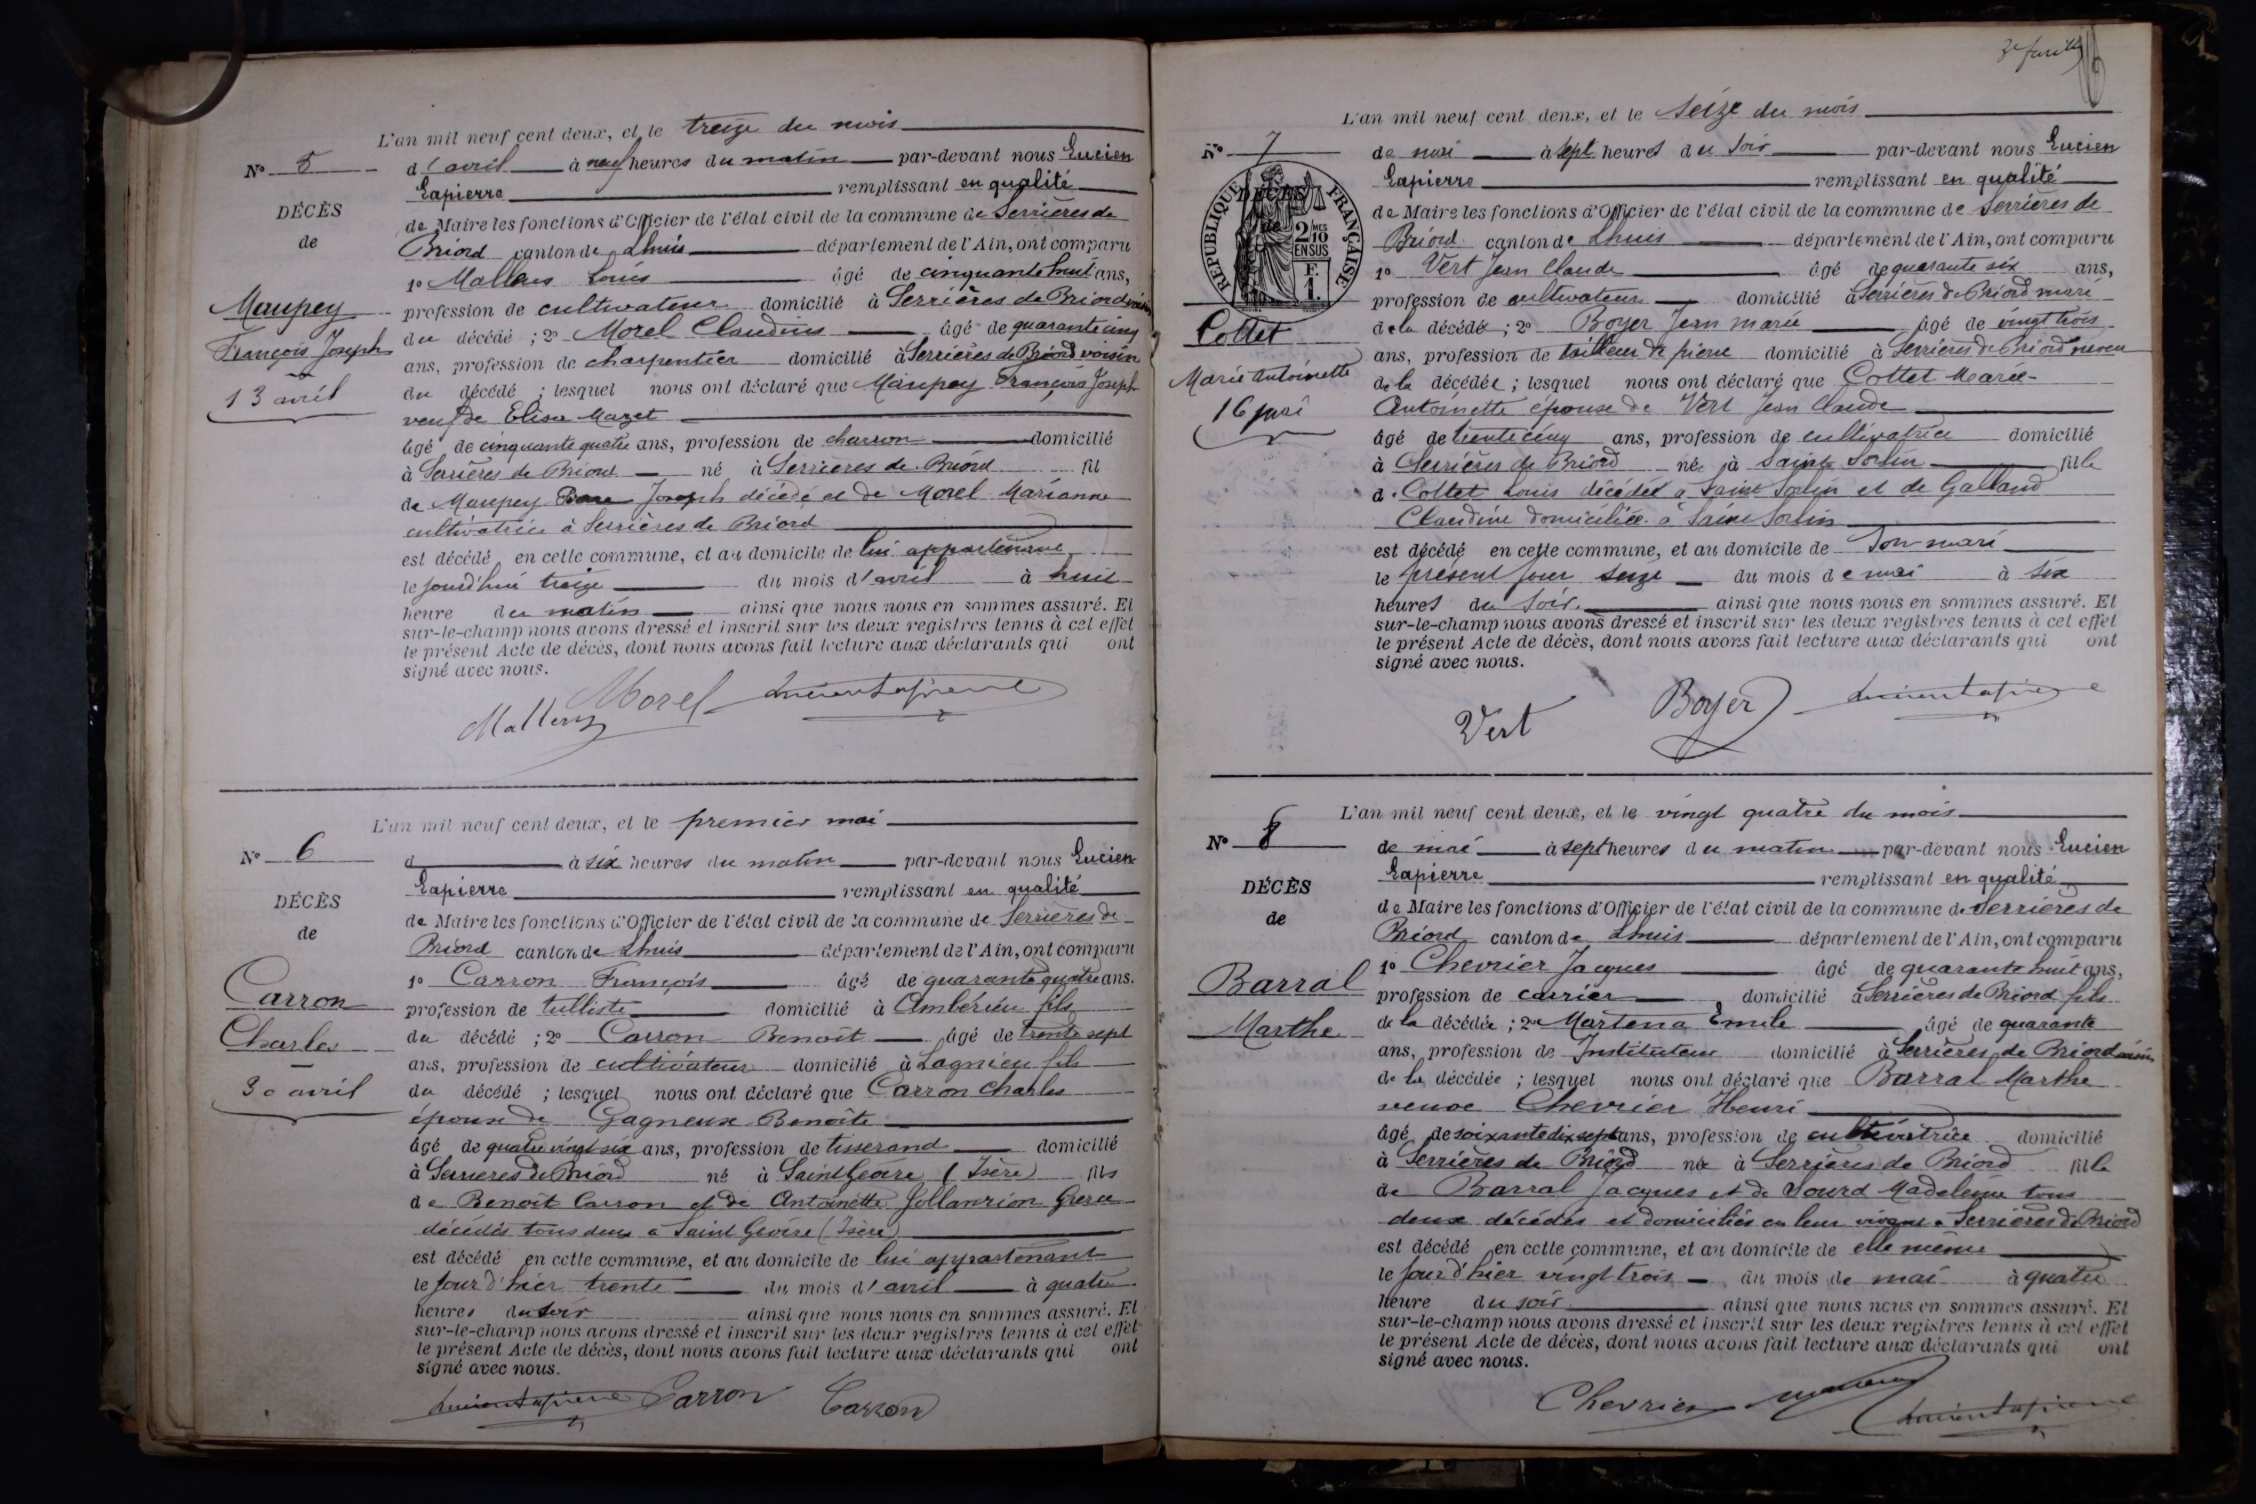 L'an mil neuf cent deux, et le treize du mois
N° 5
d'avril à neuf heures du matin par-devant nous Lucien
Lapierre remplissant en qualité
DÉCÈS
de Maire les fonctions d'Officier de l'état civil de la commune de Serrières de
de
Briord canton de Lhuis département de l'Ain, ont comparu
1° Louis âgé de cinquante huit ans,
Maupey
profession de cultivateur domicilié à Serrières de Briord voisin
du décédé ; 2° Morel Claudius âgé de quarante cinq
François Joseph
ans, profession de charpentier domicilié à Serrières de Briord voisin
13 avril
du décédé ; lesquel nous ont déclaré que Maupey François Joseph
veuf de Elisa Mazet
âgé de cinquante quatre ans, profession de charron domicilié
à Serrières de Briord né à Serrières de Briord fil
de Maupey Joseph décédé et de Morel Marianne
cultivatrice à Serrières de Briord
est décédé en cette commune, et au domicile de lui appartenant
le jourd'hui treize du mois d'avril à huit
heure du matin ainsi que nous nous en sommes assuré. Et
sur-le-champ nous avons dressé et inscrit sur les deux registres tenus à cet effet
le présent Acte de décès, dont nous avons fait lecture aux déclarants qui ont
signé avec nous.
Morel Lucien Lapierre
L'an mil neuf cent deux, et le premier mai
N° 6
d à six heures du matin par-devant nous Lucien
Lapierre remplissant en qualité
DÉCÈS
de Maire les fonctions d'Officier de l'état civil de la commune de Serrières de
de
Briord canton de Lhuis département de l'Ain, ont comparu
1° Carron François âgé de quarante quatre ans.
Carron
profession de tulliste domicilié à Ambérieu fils
Charles
du décédé ; 2° Carron Benoit âgé de trente sept
ans, profession de cultivateur domicilié à Lagnieu fils
30 avril
du décédé ; lesquel nous ont déclaré que Carron Charles
époux de Gagneux Benoîte
âgé de quatre vingt six ans, profession de tisserand domicilié
à Serrières de Briord né à Saint Geoire (Isère) fils
de Benoit Carron et de Antoinette
décédés tous deux à Saint Geoire (Isère)
est décédé en cette commune, et au domicile de lui appartenant
le jour d'hier trente du mois d'avril à quatre
heures du soir ainsi que nous nous en sommes assuré. Et
sur-le-champ nous avons dressé et inscrit sur les deux registres tenus à cet effet
le présent Acte de décès, dont nous avons fait lecture aux déclarants qui ont
signé avec nous.
Lucien Lapierre Carron Carron
L'an mil neuf cent deux, et le seize du mois
N° 7
de mai à sept heures du soir par-devant nous Lucien
Lapierre remplissant en qualité
DÉCÈS
de
RÉPUBLIQUE FRANÇAISE
2 MES 10 EN SUS
F. 1.
de Maire les fonctions d'Officier de l'état civil de la commune de Serrières de
Briord canton de Lhuis département de l'Ain, ont comparu
1° Vert Jean Claude âgé de quarante six ans,
profession de cultivateur domicilié à Serrières de Briord mari
Cottet
de la décédé ; 2° Boyer Jean marie âgé de vingt trois
ans, profession de tailleur de pierre domicilié à Serrières de Briord neveu
Marie Antoinette
de la décédée ; lesquel nous ont déclaré que Cottet Marie-
16 mai
Antoinette épouse de Vert Jean Claude
âgé de trente cinq ans, profession de cultivatrice domicilié
à Serrières de Briord née à Saint Sorlin fille
d. Cottet Louis décédé à Saint Sorlin et de Galland
Claudine domiciliée à Saint Sorlin
est décédé en cette commune, et au domicile de son mari
le présent jour seize du mois de mai à six
heures du soir. ainsi que nous nous en sommes assuré. Et
sur-le-champ nous avons dressé et inscrit sur les deux registres tenus à cet effet
le présent Acte de décès, dont nous avons fait lecture aux déclarants qui ont
signé avec nous.
Vert Boyer Lucien Lapierre
L'an mil neuf cent deux, et le vingt quatre du mois
N° 8
de mai à sept heures du matin par-devant nous Lucien
Lapierre remplissant en qualité
DÉCÈS
de Maire les fonctions d'Officier de l'état civil de la commune de Serrières de
de
Briord canton de Lhuis département de l'Ain, ont comparu
1° Chevrier Jacques âgé de quarante huit ans,
Barral
profession de carrier domicilié à Serrières de Briord fils
Marthe
de la décédée ; 2° Martena Emile âgé de quarante
ans, profession de Instituteur domicilié à Serrières de Briord voisin
de la décédée ; lesquel nous ont déclaré que Barral Marthe
veuve Chevrier Henri
âgé de soixante dix sept ans, profession de cultivatrice domicilié
à Serrières de Briord née à Serrières de Briord fille
de Barral Jacques et de Sourd Madeleine tous
deux décédés et domiciliés en leur vivant à Serrières de Briord
est décédé en cette commune, et au domicile de elle même
le jour d'hier vingt trois du mois de mai à quatre
heure du soir ainsi que nous nous en sommes assuré. Et
sur-le-champ nous avons dressé et inscrit sur les deux registres tenus à cet effet
le présent Acte de décès, dont nous avons fait lecture aux déclarants qui ont
signé avec nous.
Chevrier Lucien Lapierre